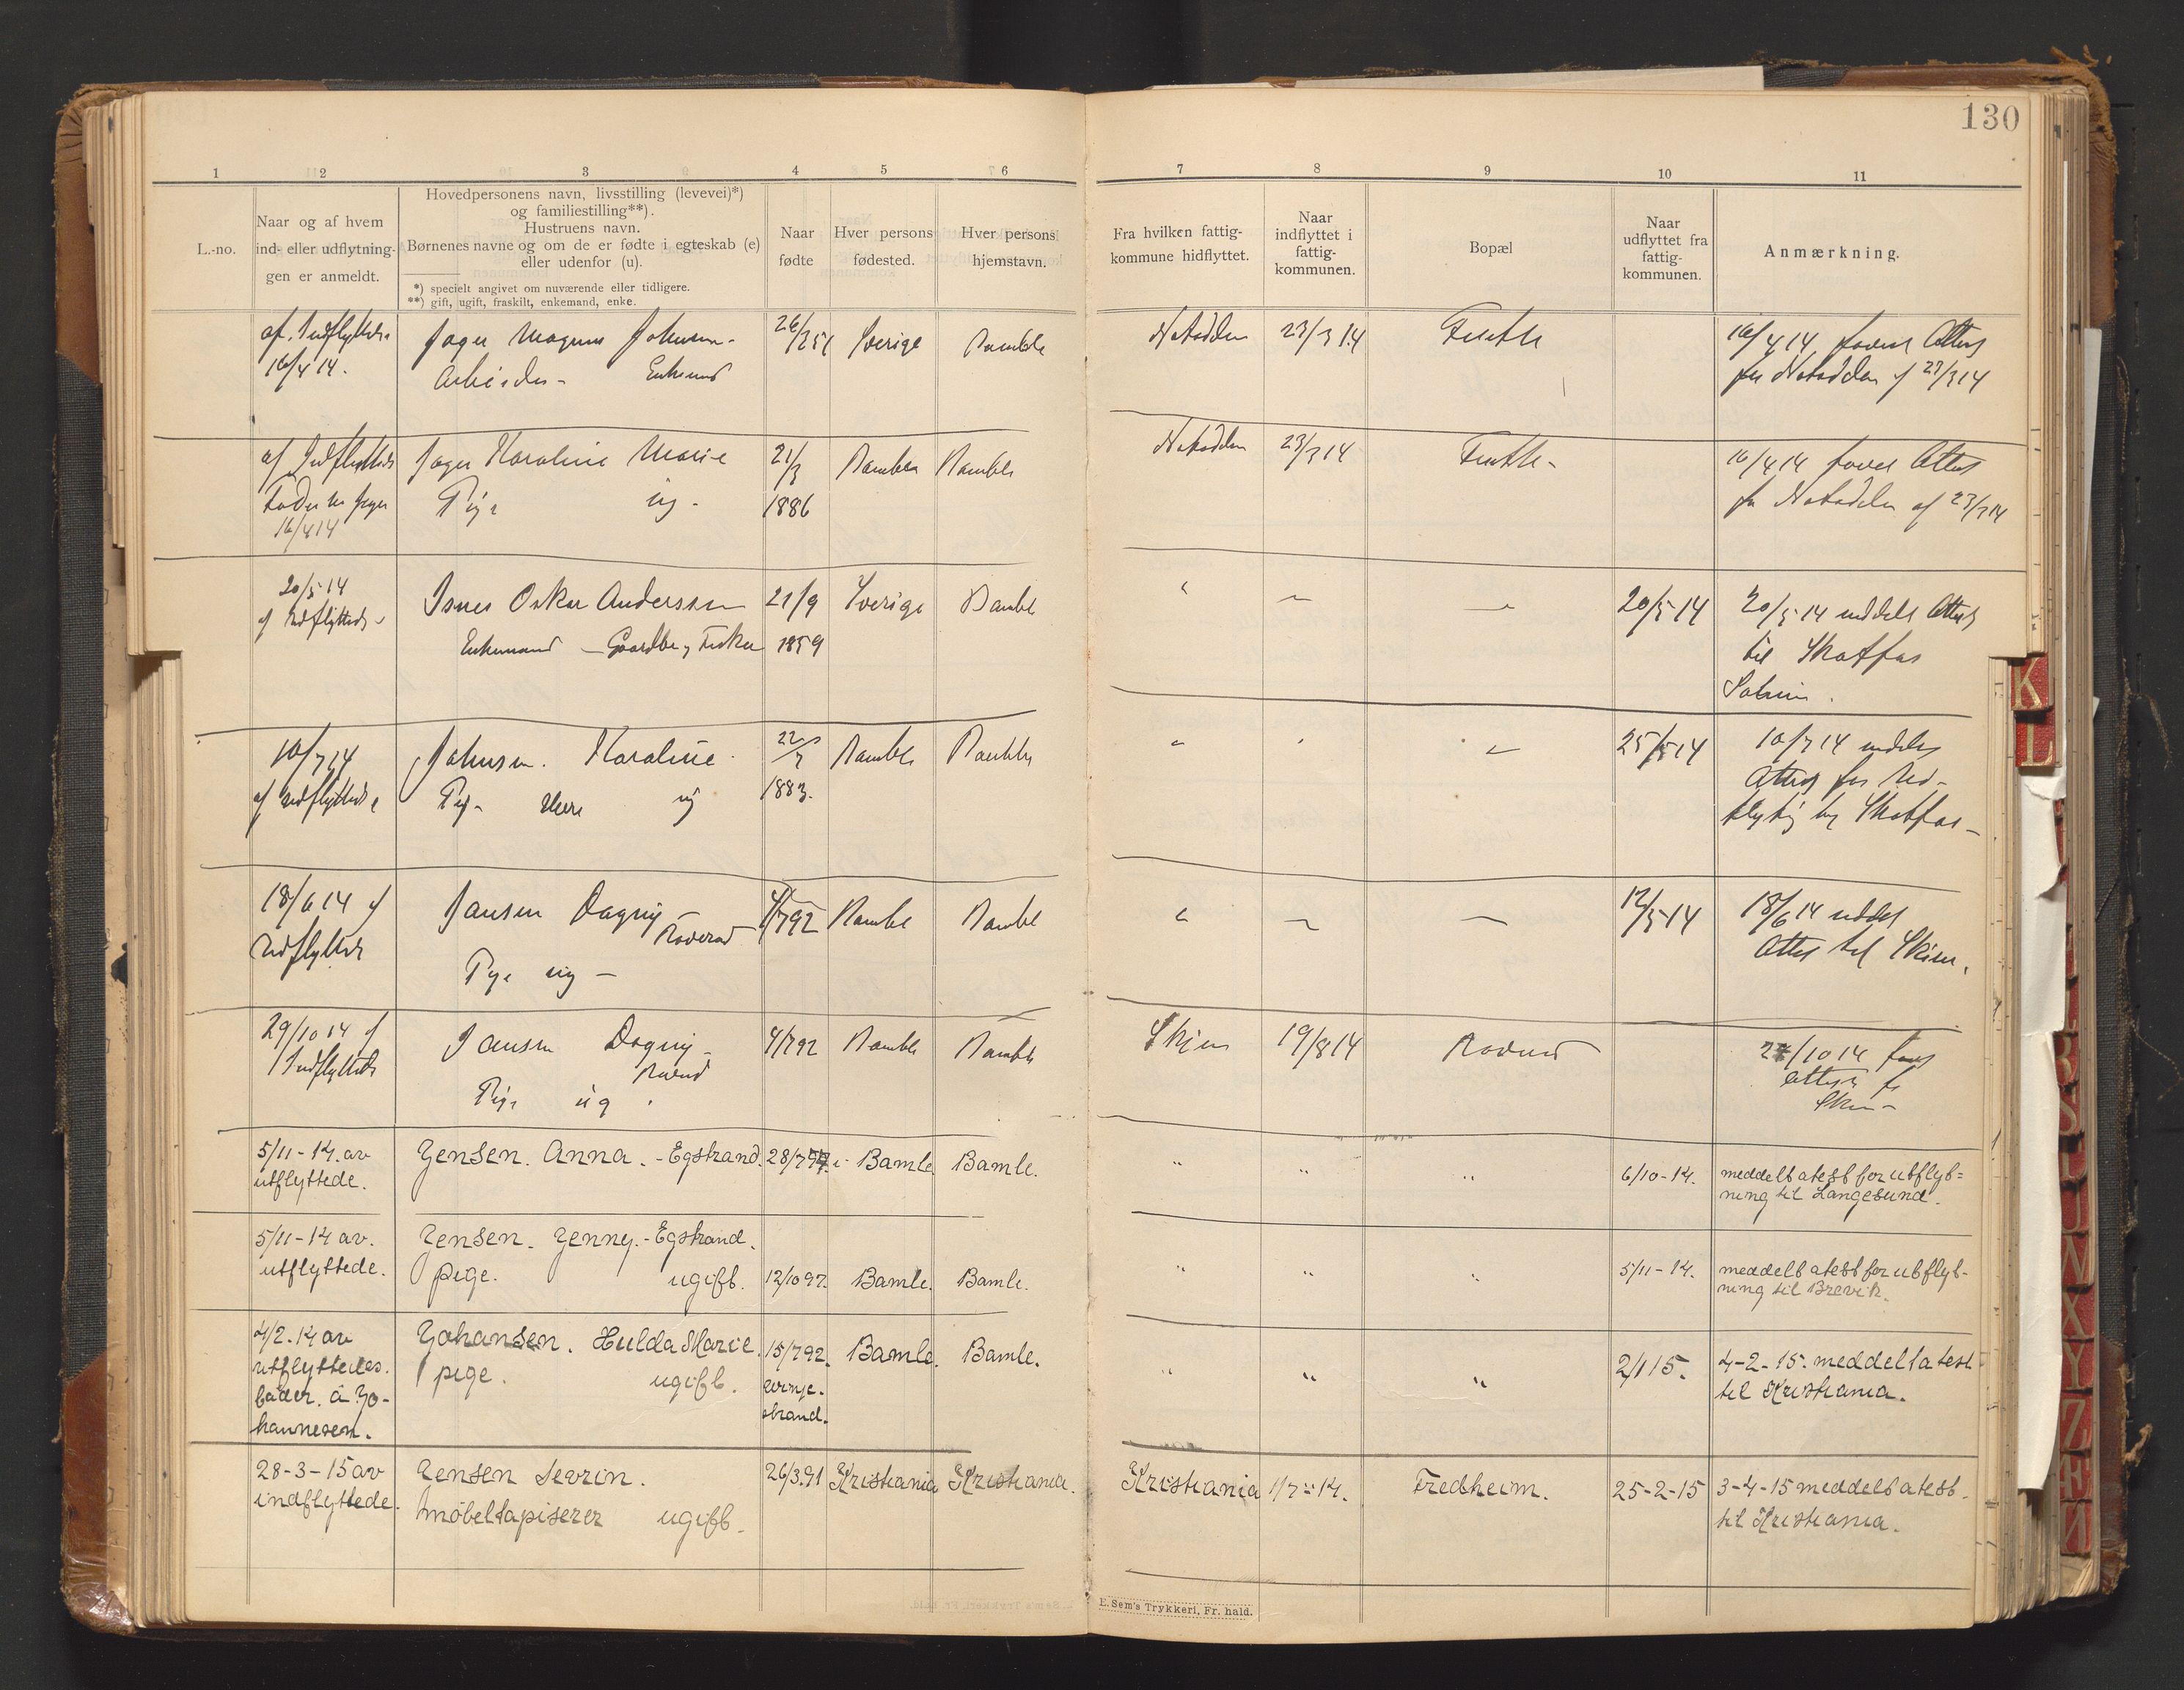 130
1 2 3 4 5 6 7 8 9 10 11
L.-no.
Naar og af hvem
ind- eller udflytnin-
gen er anmeldt.
Hovedpersonens navn, livsstilling (levevei)*)
og familiestilling**).
Hustruens navn.
Børnenes navne og om de er fødte i egteskab (e)
eller udenfor (u).
*) specielt angivet om nuværende eller tidligere.
**) gift, ugift, fraskilt, enkemand, enke.
Naar
fødte
Hver persons
fødested.
Hver persons
hjemstavn.
Fra hvilken fattig-
kommune hidflyttet.
Naar
indflyttet i
fattig-
kommunen.
Bopæl
Naar
udflyttet fra
fattig-
kommunen.
Anmærkning.
af Indflyttede
16/4 14.
Jager Magnus Johnsen -
Arbeider - Enkemand
Sverige
Bamble
Notodden
23/3 14
16/4 14 Attest
fra Notodden af 23/3 14
af Indflyttede
16/4 14
Jager Karoline Marie
Pige ug.
21/3
1886
Bamble
Bamble
Notodden
23/3 14
16/4 14 Attest
fra Notodden af 23/3 14
20/5 14
af Udflyttede
Oskar Anderssen
Enkemand - Gaardbr. og Fisker
21/9
1859
Sverige
Bamble
20/5 14
20/5 14 meddelt Attest
til Skotfos
10/7 14
af Udflyttede
Johnsen. Karoline
Pige ug
1883.
Bamble
Bamble
25/5 14
10/7 14 meddelt
Attest for Ud-
flytning til Skotfos -
18/6 14 af
Udflyttede
Jansen Dagny -
Pige ug -
4/7 92
Bamble
Bamble
12/5 14
18/6 14 meddelt
Attest til Skien.
29/10 14 af
Indflyttede
Jansen Dagny -
Pige ug.
4/7 92
Bamble
Bamble
Skien
19/8 14
Attest fra
Skien -
5/11 - 14. av
utflyttede.
Jensen. Anna. - Egstrand.
Bamle.
Bamle.
6/10 - 14.
meddelt atest for utflyt=
ning til Langesund.
5/11 - 14 av.
utflyttede.
Jensen. Jenny. - Egstrand.
pige. ugift.
12/10 97.
Bamle.
Bamle.
5/11 - 14.
meddelt atest for utflyt-
ning til Brevik.
4/2 - 14 av
utflyttedes
fader. A Jo-
hannesen.
Johansen. Hulda Marie.
pige. ugift.
15/7 92.
Bamle.
Bamle.
2/1 15.
4-2-15. meddelt atest
til Kristiania.
28-3-15 av
indflyttede.
Jensen Sevrin.
møbeltapiserer ugift.
26/3 91
Kristiania
Kristiania.
Kristiania
1/7 - 14.
Fredheim.
25-2-15
3-4-15 meddelt atest
til Kristiania.
E. Sem's Trykkeri, Fr. hald.
K
L
X
Y
Z
Æ